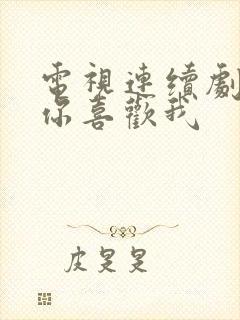 電視連續劇
你喜歡我
皮旻旻